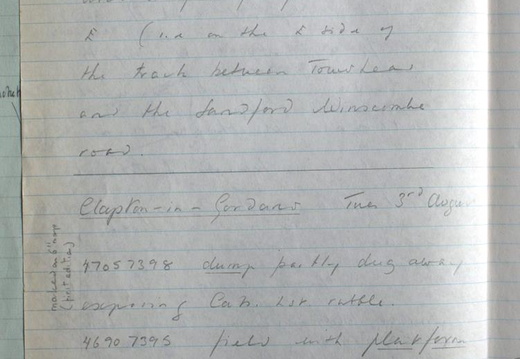 E (ie on the E side of
the track between Towerhead
and the Sandford Winscombe
road.
Clapton-in-Gordano Tues 3rd August
47057398 dump partly dug away
exposing Carb. Lst. rubble.
46907395 field with platform
marked on 6" map